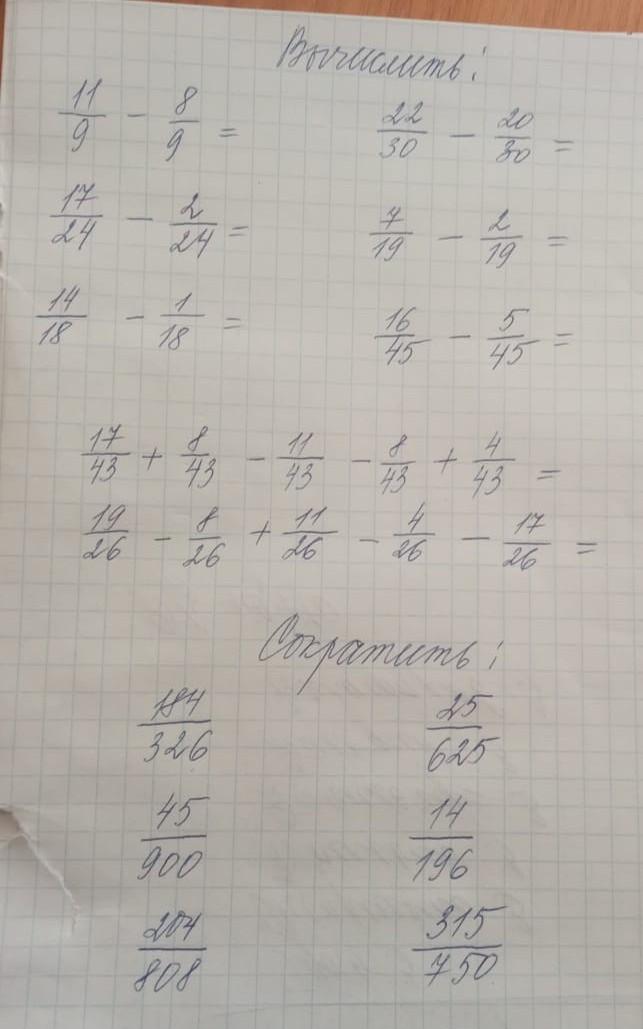 Вычислить:
11/9 - 8/9 = 22/30 - 20/30 =
17/24 - 2/24 = 7/19 - 2/19 =
14/18 - 1/18 = 16/45 - 5/45 =
17/43 + 8/43 - 11/43 - 8/43 + 4/43 =
19/26 - 8/26 + 11/26 - 4/26 - 17/26 =
Сократить:
184/326 25/625
45/900 14/196
204/808 315/750